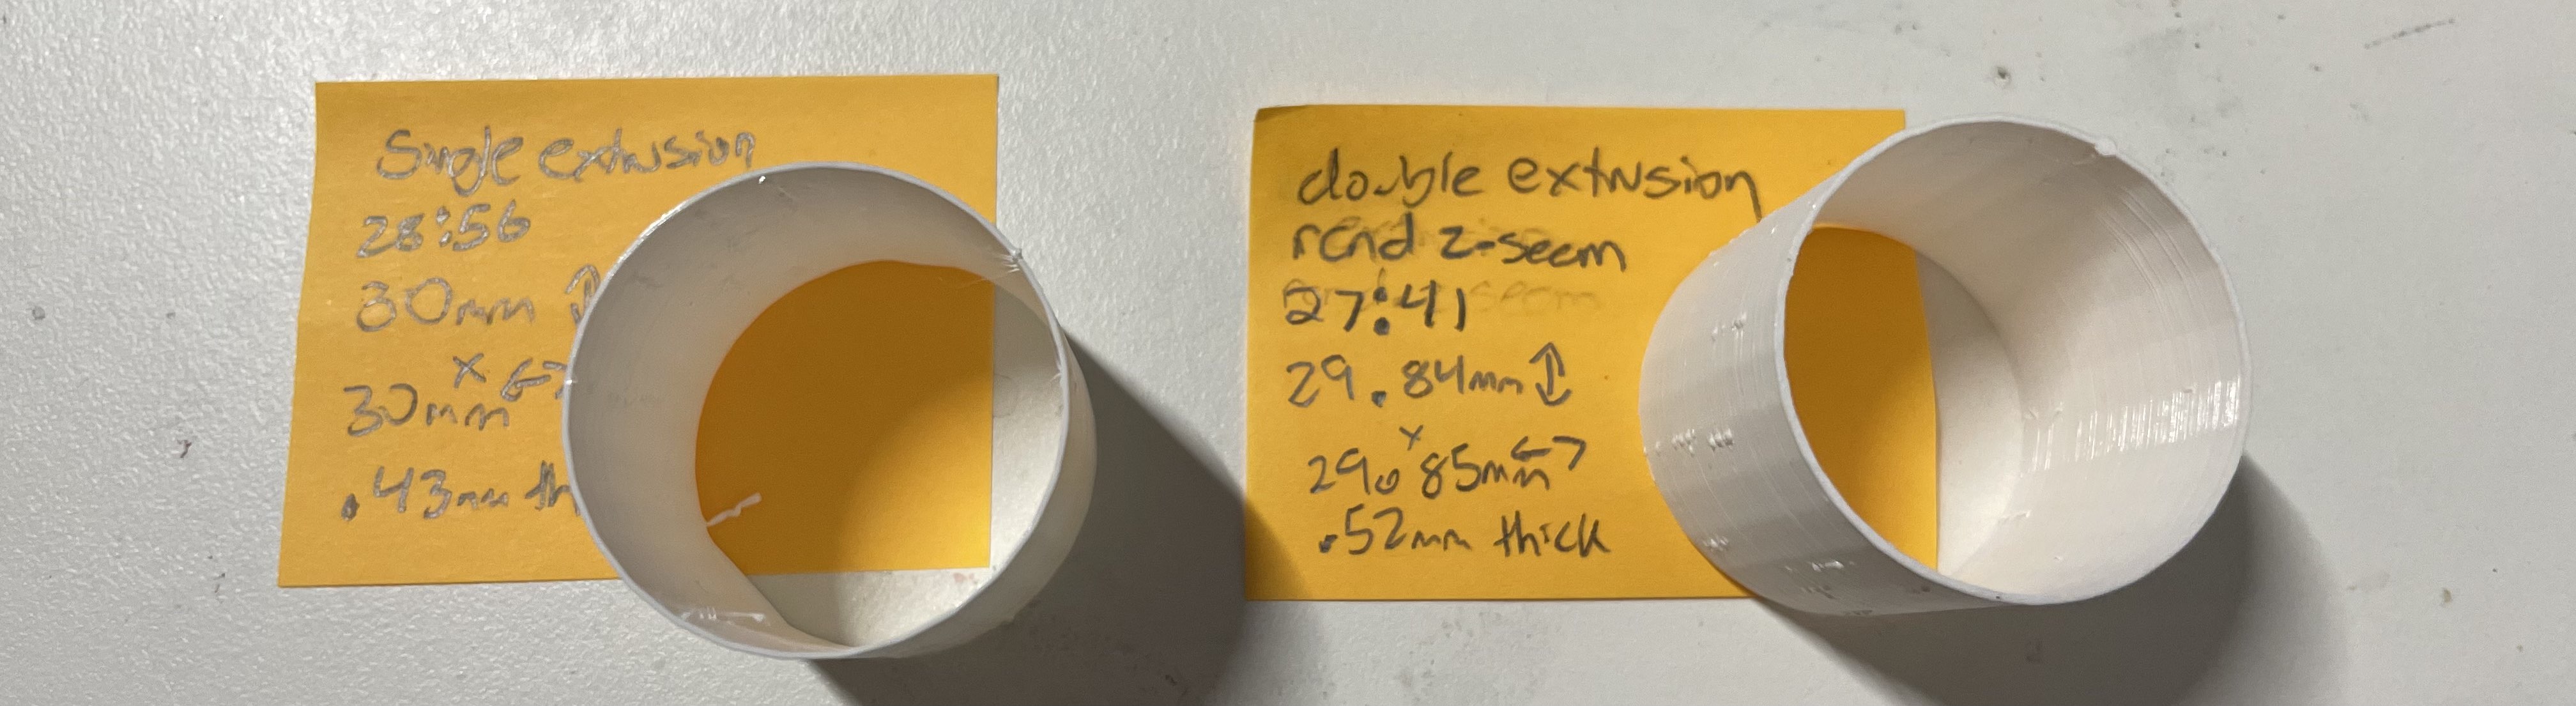 Single extrusion
28:56
30mm ↕
x
30mm ↔
.43mm th
double extrusion
rand z-seam
27:41
29.84mm ↕
x
29.85mm ↔
.52mm thick